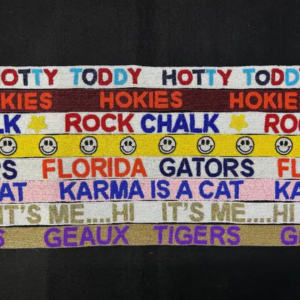 HOTTY TODDY HOTTY TODDY
HOKIES HOKIES HOKIES
ROCK CHALK ROCK
FLORIDA GATORS
KARMA IS A CAT
IT'S ME....HI IT'S ME....HI
GEAUX TIGERS